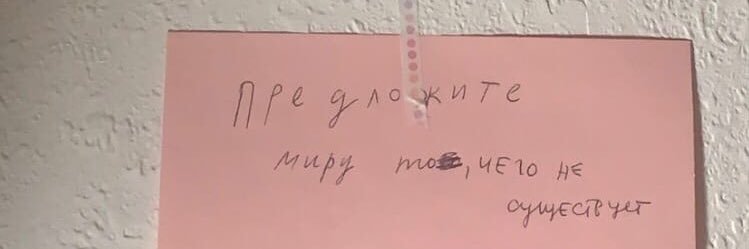 Предложите
миру то, чего не
существует